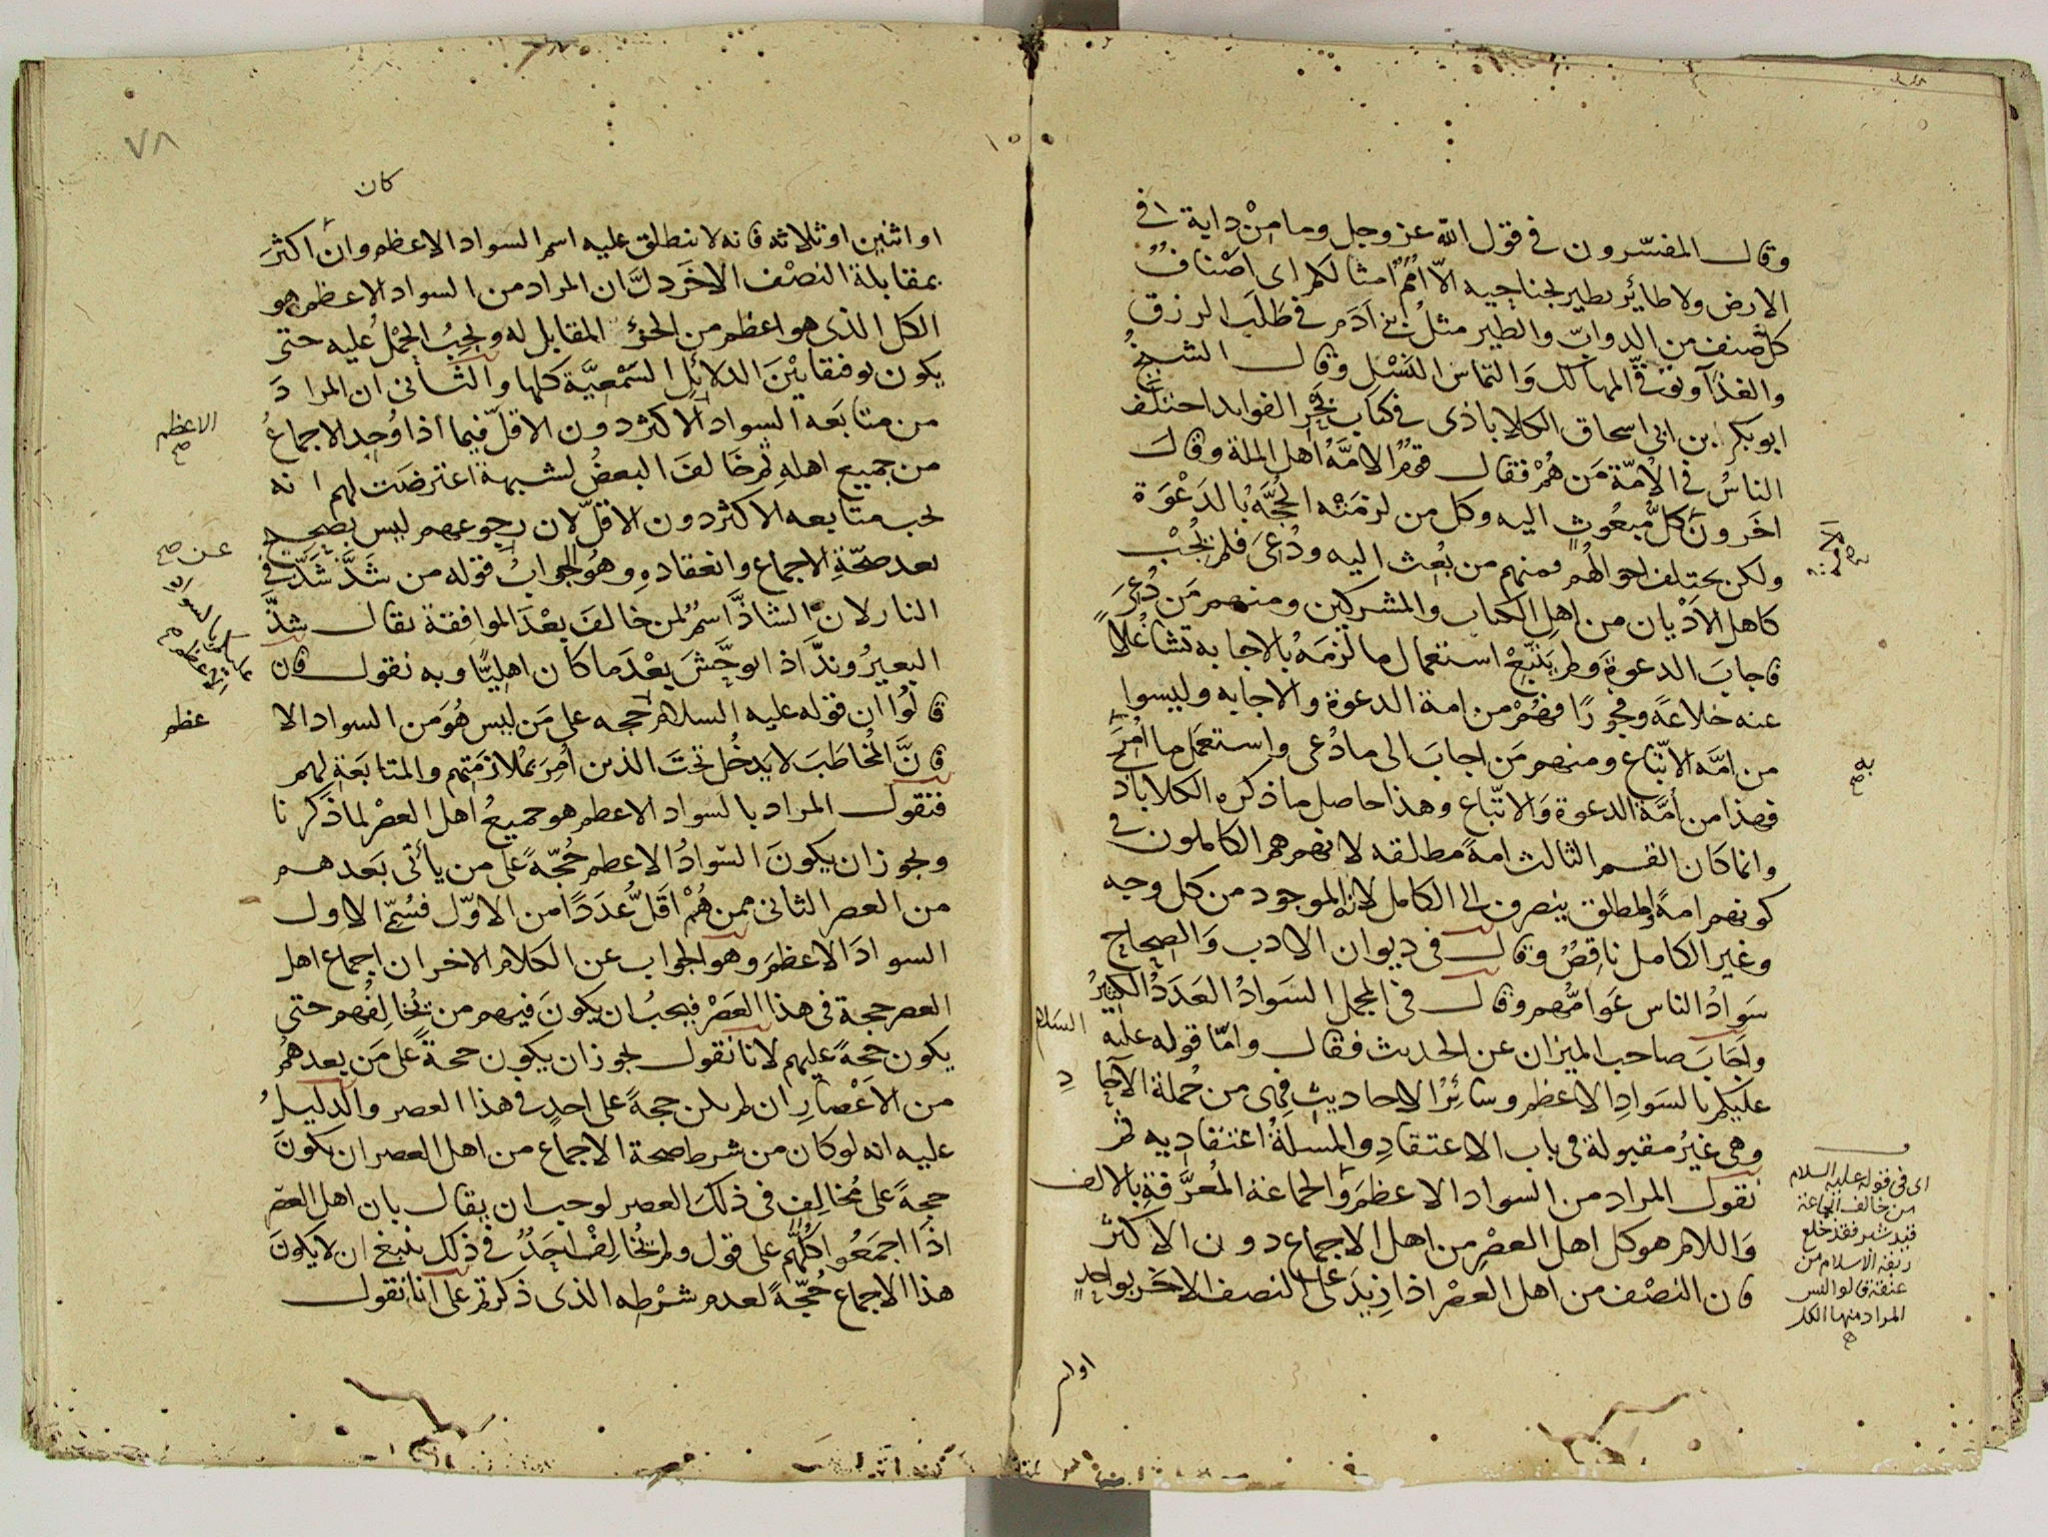 وقال المفسّرون في قول الله عز وجل وما مِنْ داية في
الارض ولا طائر يطير بجناحيه الّا أُمَمٌ امثالكم اى اصْنافٌ
كل صنف من الدوابّ والطير مثلُ بنى آدَمَ في طَلَب الرزق
والغذآ وتوقّي المهالك وَالتماس النَسْل وقال الشيخُ
ابو بكر ابن ابى اسحاق الكلاباذى في كتاب بَحْر الفوايد اختلَف
الناسُ في الاُمّة مَن هُمْ فقال قومٌ الامّةُ اهل الملة وقالَ
اخَرونَ كلُّ مبعُوثٍ اليه وكل من لزمَتْه الحُجَّةُ بالدَعْوَة
ولكن يختلف احوالهُم فمنهم من بُعِث اليه ودُعىَ فلم يُجْب
كاهل الاَدْيان من اهل الكتاب والمشركين ومنهم مَن دُعِىَ
فاجابَ الدعوةَ ولم يَتّبِعْ استعمال ما لَزمَهُ بالاجابه تشاغُلاً
عنه خلاعةً وفجورًا فهُمْ من امة الدعوة والاجابه وليسوا
من امَّه الاتّباع ومنهم مَن اجابَ الى ما دُعى واستعمَل ما اُمِرَ
به صح
فهذا من أُمَّةِ الدعوة وَالاتّباع وهذا حاصل ما ذكره الكلاباذ
وانما كان القسم الثالث امةً مطلقه لانهم هم الكاملون في
كونهم امةً والمطلق ينصرف الى الكامل لانه الموجود من كل وجه
وغير الكامل ناقِصٌ وقال في ديوان الادب وَالصِحاح
سَوادُ الناس عَوامُّهم وقال في المجمل السَوادُ العَدَدُ الكثيرُ
واَجَابَ صاحب الميزان عن الحديث فقال وامّا قوله عليه السلام
عليكم بالسَوادِ الاعظم وسائِرُ الاحاديثِ فهى من جُملة الآحادِ
وهى غيرُ مقبولة في باب الاعتقادِ والمسلةُ اعتقاديه ثم
نقول المراد من السواد الاعظمَ والجماعة المُعرَّفةِ بالالف
وَاللام هو كل اهل العصْرِ من اهل الاجماع دون الاكثرْ
فان النصْف من اهل العصْر اذا زِيدَ على النصف الاخَر بواحِدٍ
اى في قوله عليه السلام
من خالف الجماعة
قيد شبر فقد خلع
ربقة الاسلام من
عنقه قالوا ليس
المراد منها الكل
صح
٧٨
كان
او اثنين او ثلاثه فانه لا ينطلق عليه اسم السواد الاعظم وان أكثرَ
بمقابلة النصْف الاخَر دلَّ ان المراد من السواد الاعظم هو
الكل الذى هو اعظم من الجزء المقابل له ويجبُ الحَمْلُ عليه حتى
يكون توفيقا بَيْنَ الدلائل السَمْعيَّة كلها والثانى ان المرادَ
من متابَعَه السواد الاكثر دون الاقلّ فيما اذا وُجد الاجماعُ
الاعظم صح
من جميع اهلهِ ثم خَالَفَ البعضُ لشبهة اعترضَت لهم انه
يجب متابعه الاكثر دون الاقلّ لان رجوعهم ليس بصحيح
بعد صحّةِ الاجماع وانعقاده وهُو الجوابُ قوله من شَذَّ شَذَّ في
عن صح
النار لان الشاذَّ اسمٌ لمن خالَفَ بعْدَ الموافقة يقال شذَّ
البعيرُ وندَّ اذا توحَّشَ بعْدَ ما كان اهليًّا وبه نقول فان
قالوُا ان قوله عليه السلام حجه على مَن ليس هُوَ من السواد الا
عظم
فانَّ المُخاطَبَ لا يَدخُل تحتَ الذين اُمِرَ بمُلازمَتِهم والمتابَعَةِ لهم
فنقول المراد بالسواد الاعظم هو جميعُ اهل العصْر لما ذكرنا
ويجوز ان يكونَ السّوادُ الاعظم حُجّةً على من يأتى بَعَدهم
من العصر الثانى ممن هُمْ اقَلّ عدَدًا من الاوّل فسُمِّ الاول
السوادَ الاعظمَ وهو الجواب عن الكلام الاخر ان اجماع اهل
العصر حجة في هذا العَصْر فيجبُ ان يكونَ فيهم من يُخالِفُهم حتى
يكون حجةً عليهم لانا نقول يجوز ان يكون حجةً على مَن بعدهمُ
من الاَعْصارِ ان لم يكن حجةً على احدٍ في هذا العصر والدليلُ
عليه انه لو كان من شرط صحة الاجماع من اهل العصر ان يكونَ
حجةً على مُخالِف في ذلكَ العصر لوجب ان يقال بان اهل العصر
اذَا اجمَعُوا كلُّهم على قول ولم يُخالِفْ احَدٌ في ذلك ينبغى ان لا يكونَ
هذا الاجماع حُجّةً لعدم شرْطِه الذى ذكرتم على أنا نقول